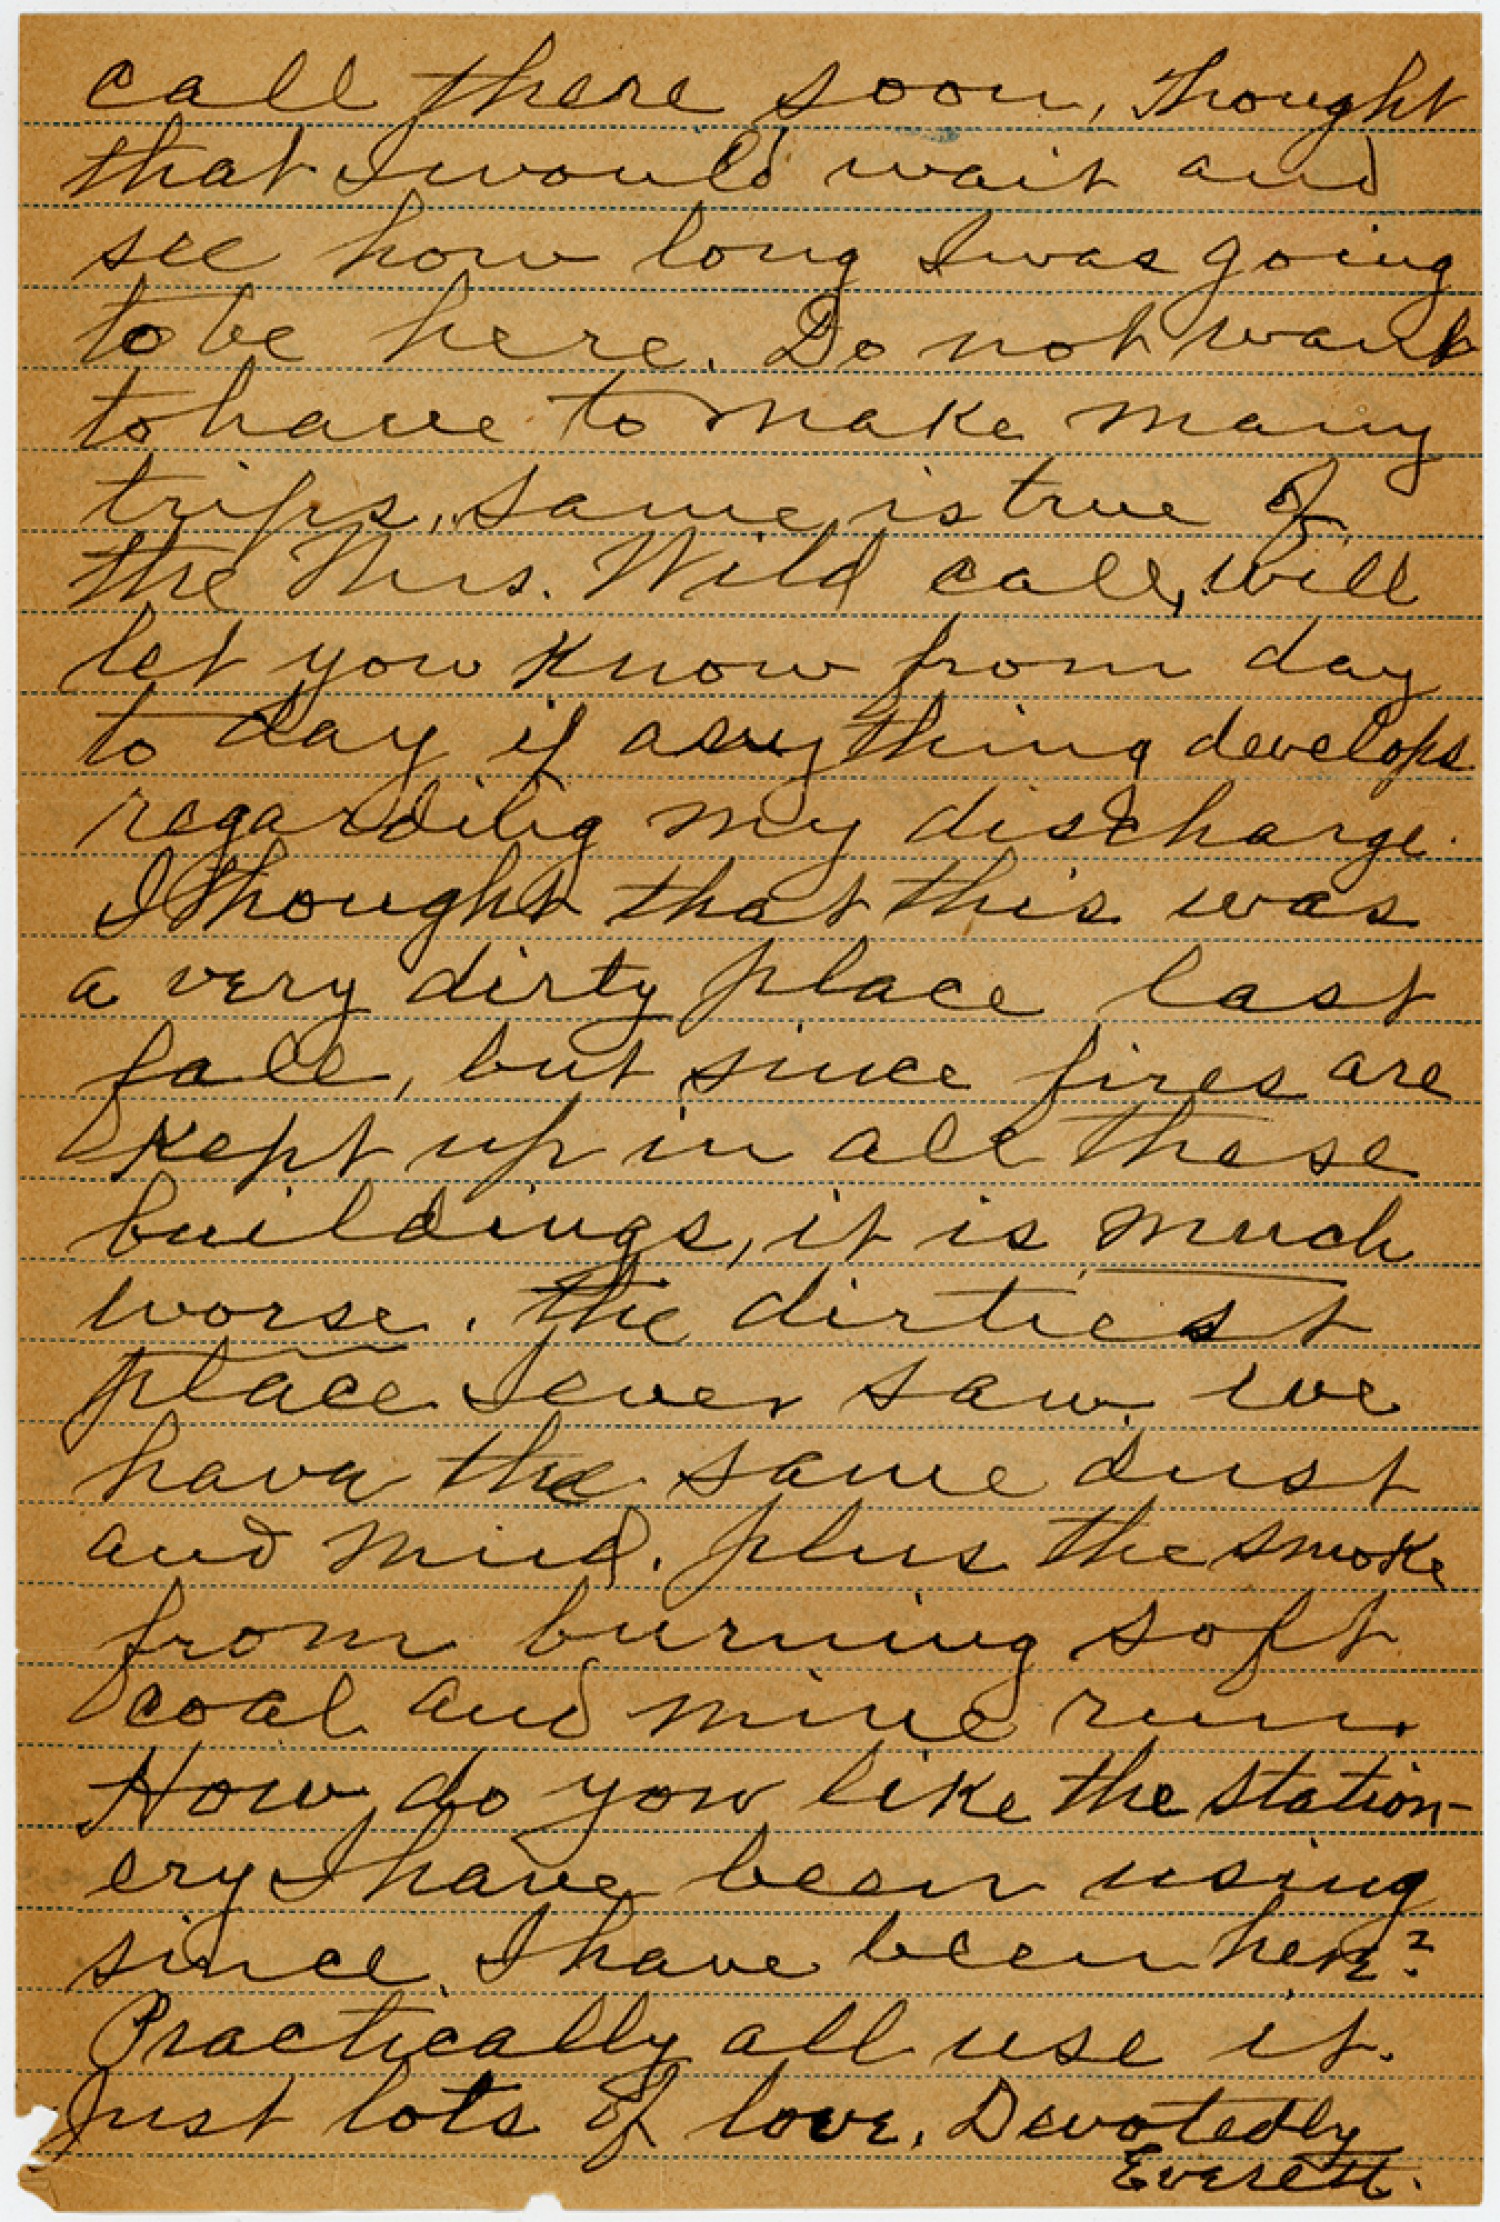 call there soon, Thought
that I would wait and
see how long I was going
to be here. Do not want
to have to make many
trips, Same is true of
the Mrs. Wild call, will
let you know from day
to day if anything develops
regarding my discharge.
I thought that this was
a very dirty place last
fall, but since fires are
kept up in all these
buildings, it is much
worse. The dirtiest
place I ever saw. We
have the same dust
and mud. plus the smoke
from burning soft
coal and mine run.
How do you like the station-
ery I have been using
since I have been here?
Practically all use it.
Just lots of love, Devotedly
Everett.